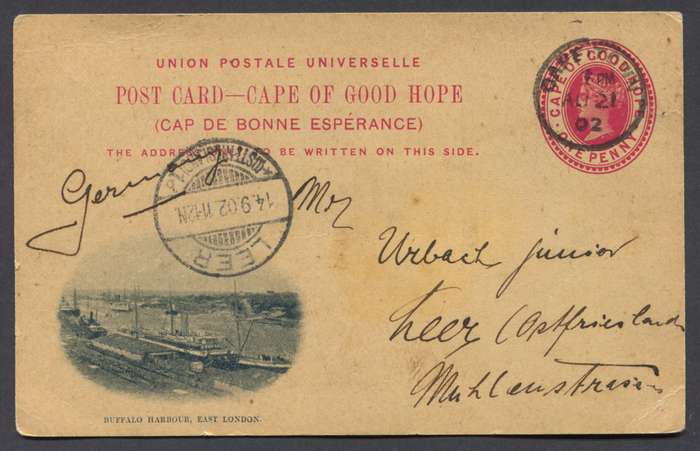 UNION POSTALE UNIVERSELLE
POST CARD—CAPE OF GOOD HOPE
(CAP DE BONNE ESPÉRANCE)
THE ADDRESS TO BE WRITTEN ON THIS SIDE.
CAPE OF GOOD HOPE
ONE PENNY
CAPE
PM
AU 21
02
Germany
LEER
14.9.02.11-12N.
(OSTFRIESLAND)
Mr
Urbach junior
Leer (Ostfriesland
Mühlenstrasse
BUFFALO HARBOUR, EAST LONDON.